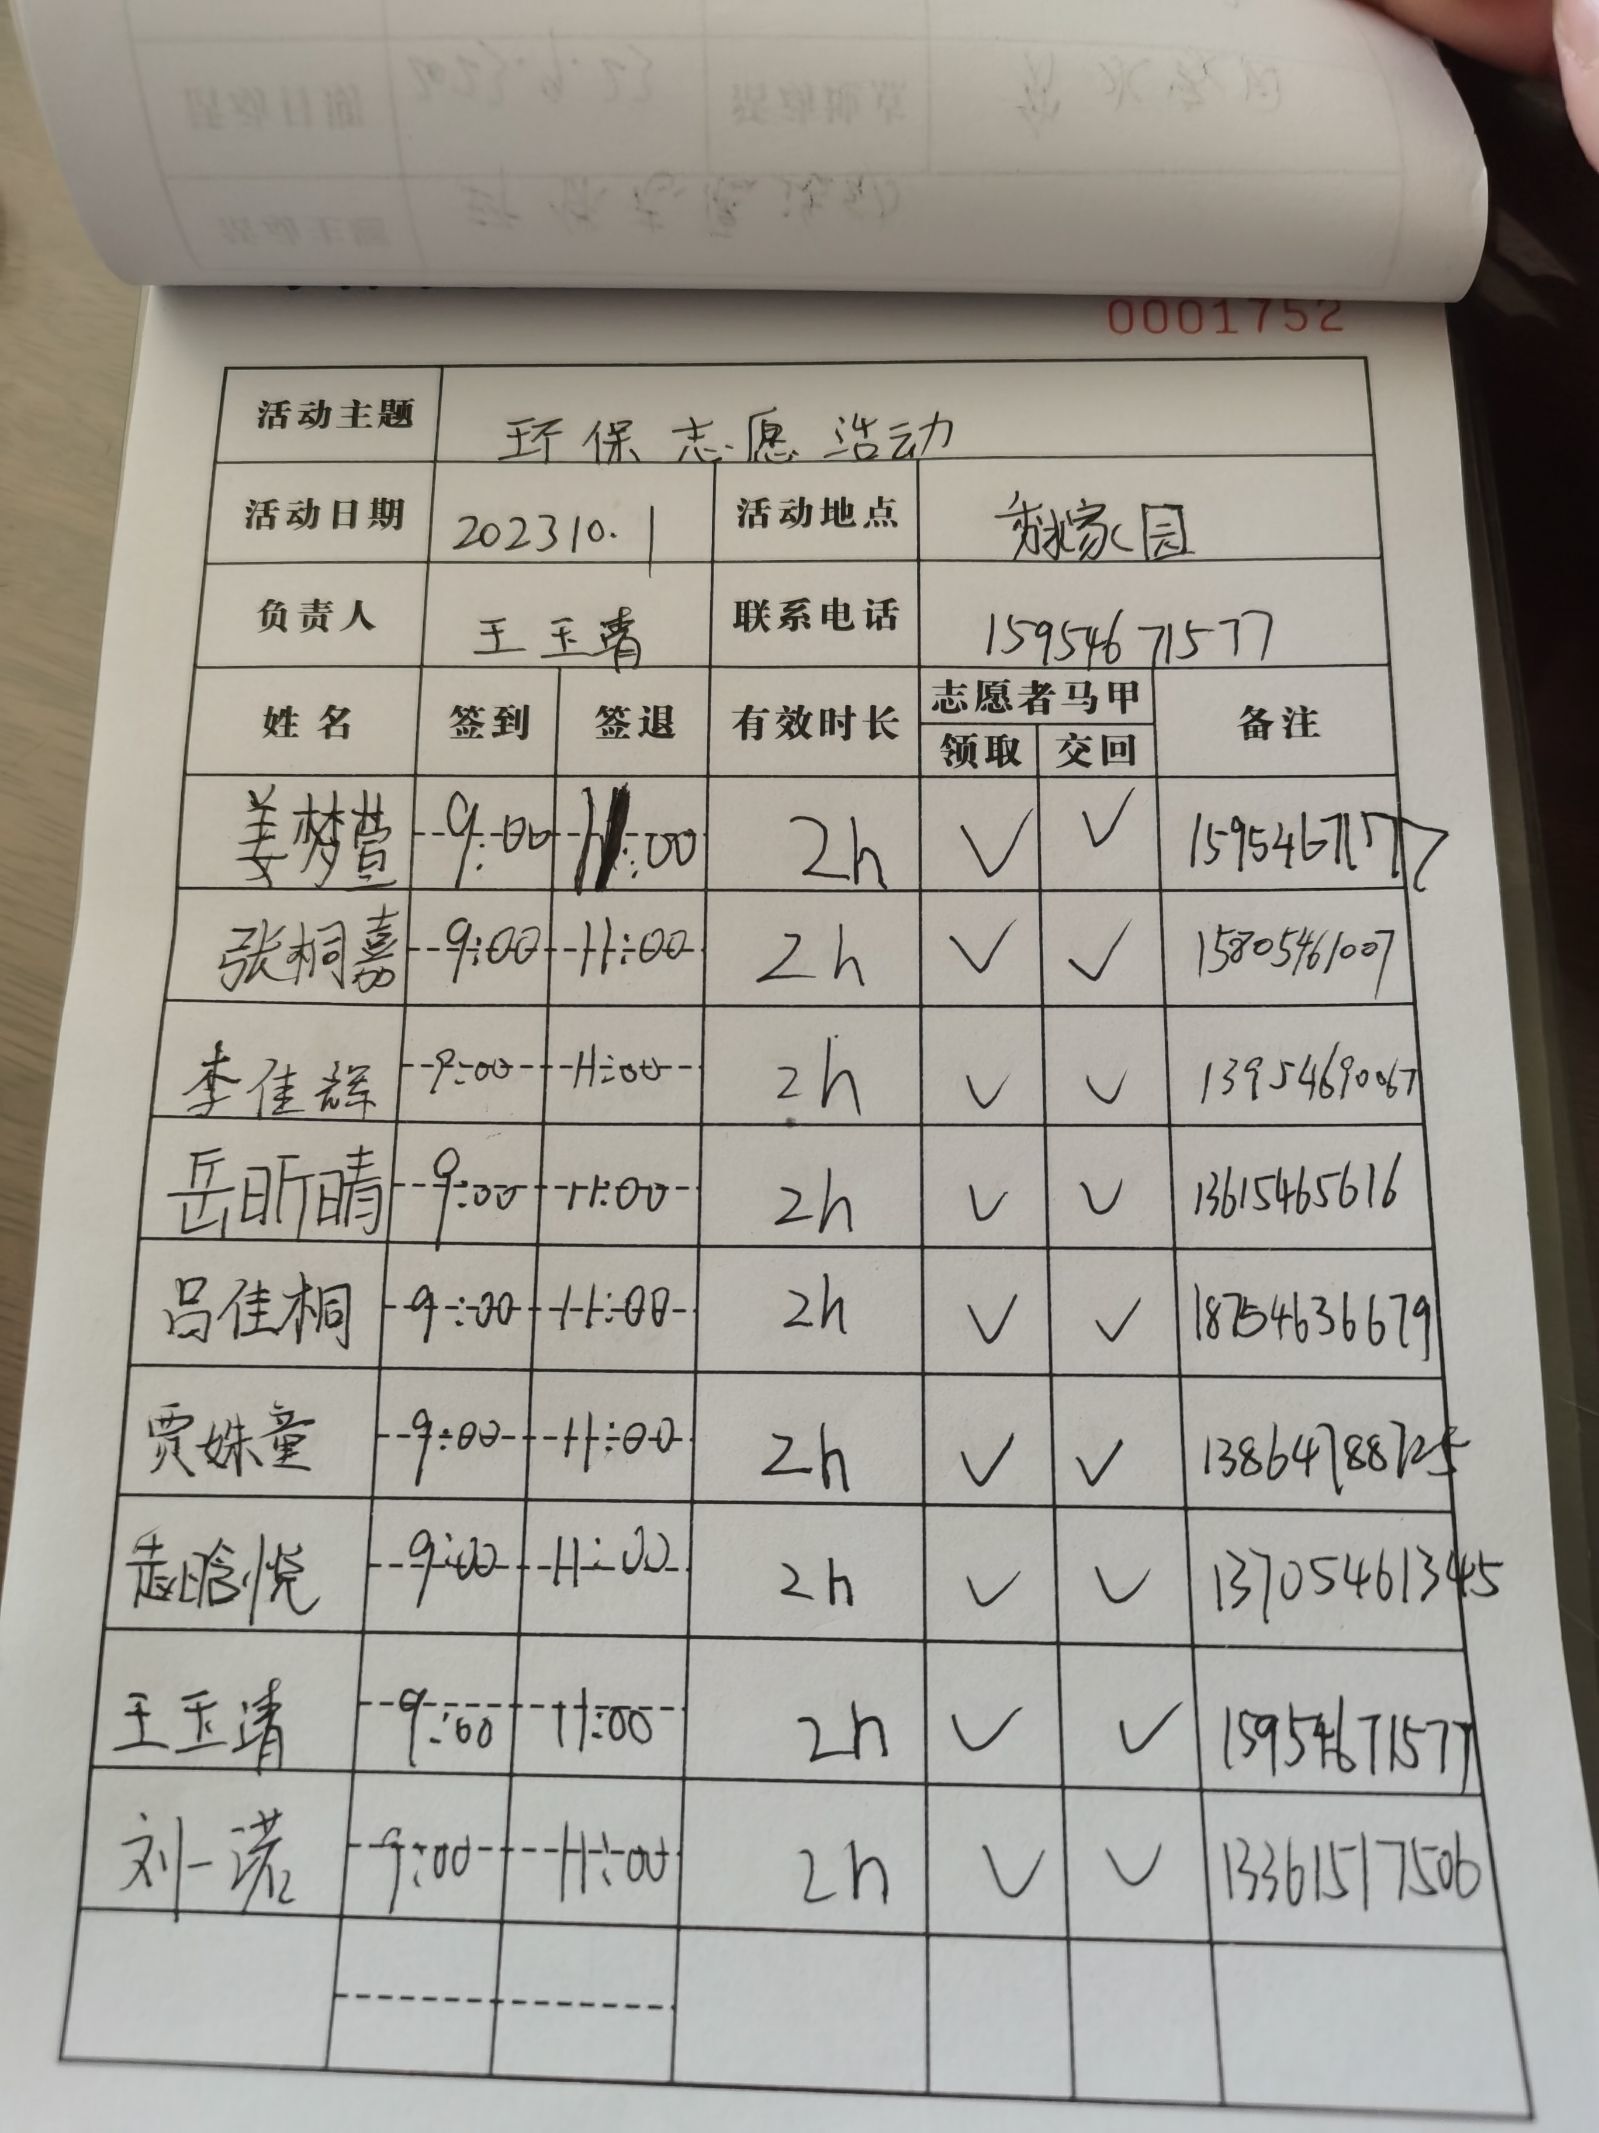 0001752
活动主题 环保志愿活动
活动日期 202310.1 活动地点 家园
负责人 王玉清 联系电话 15954671577
姓名 签到 签退 有效时长 志愿者马甲 备注
领取 交回
姜梦萱 9:00 11:00 2h ✓ ✓ 15954671577
张桐嘉 9:00 11:00 2h ✓ ✓ 15805461007
李佳辉 9:00 11:00 2h ✓ ✓ 13954690067
岳昕晴 9:00 11:00 2h ✓ ✓ 13615465616
吕佳桐 9:00 11:00 2h ✓ ✓ 18754636679
贾姝童 9:00 11:00 2h ✓ ✓ 13864788725
赵晗悦 9:00 11:00 2h ✓ ✓ 13705461345
王玉清 9:00 11:00 2h ✓ ✓ 15954671577
刘一诺 9:00 11:00 2h ✓ ✓ 13361517506